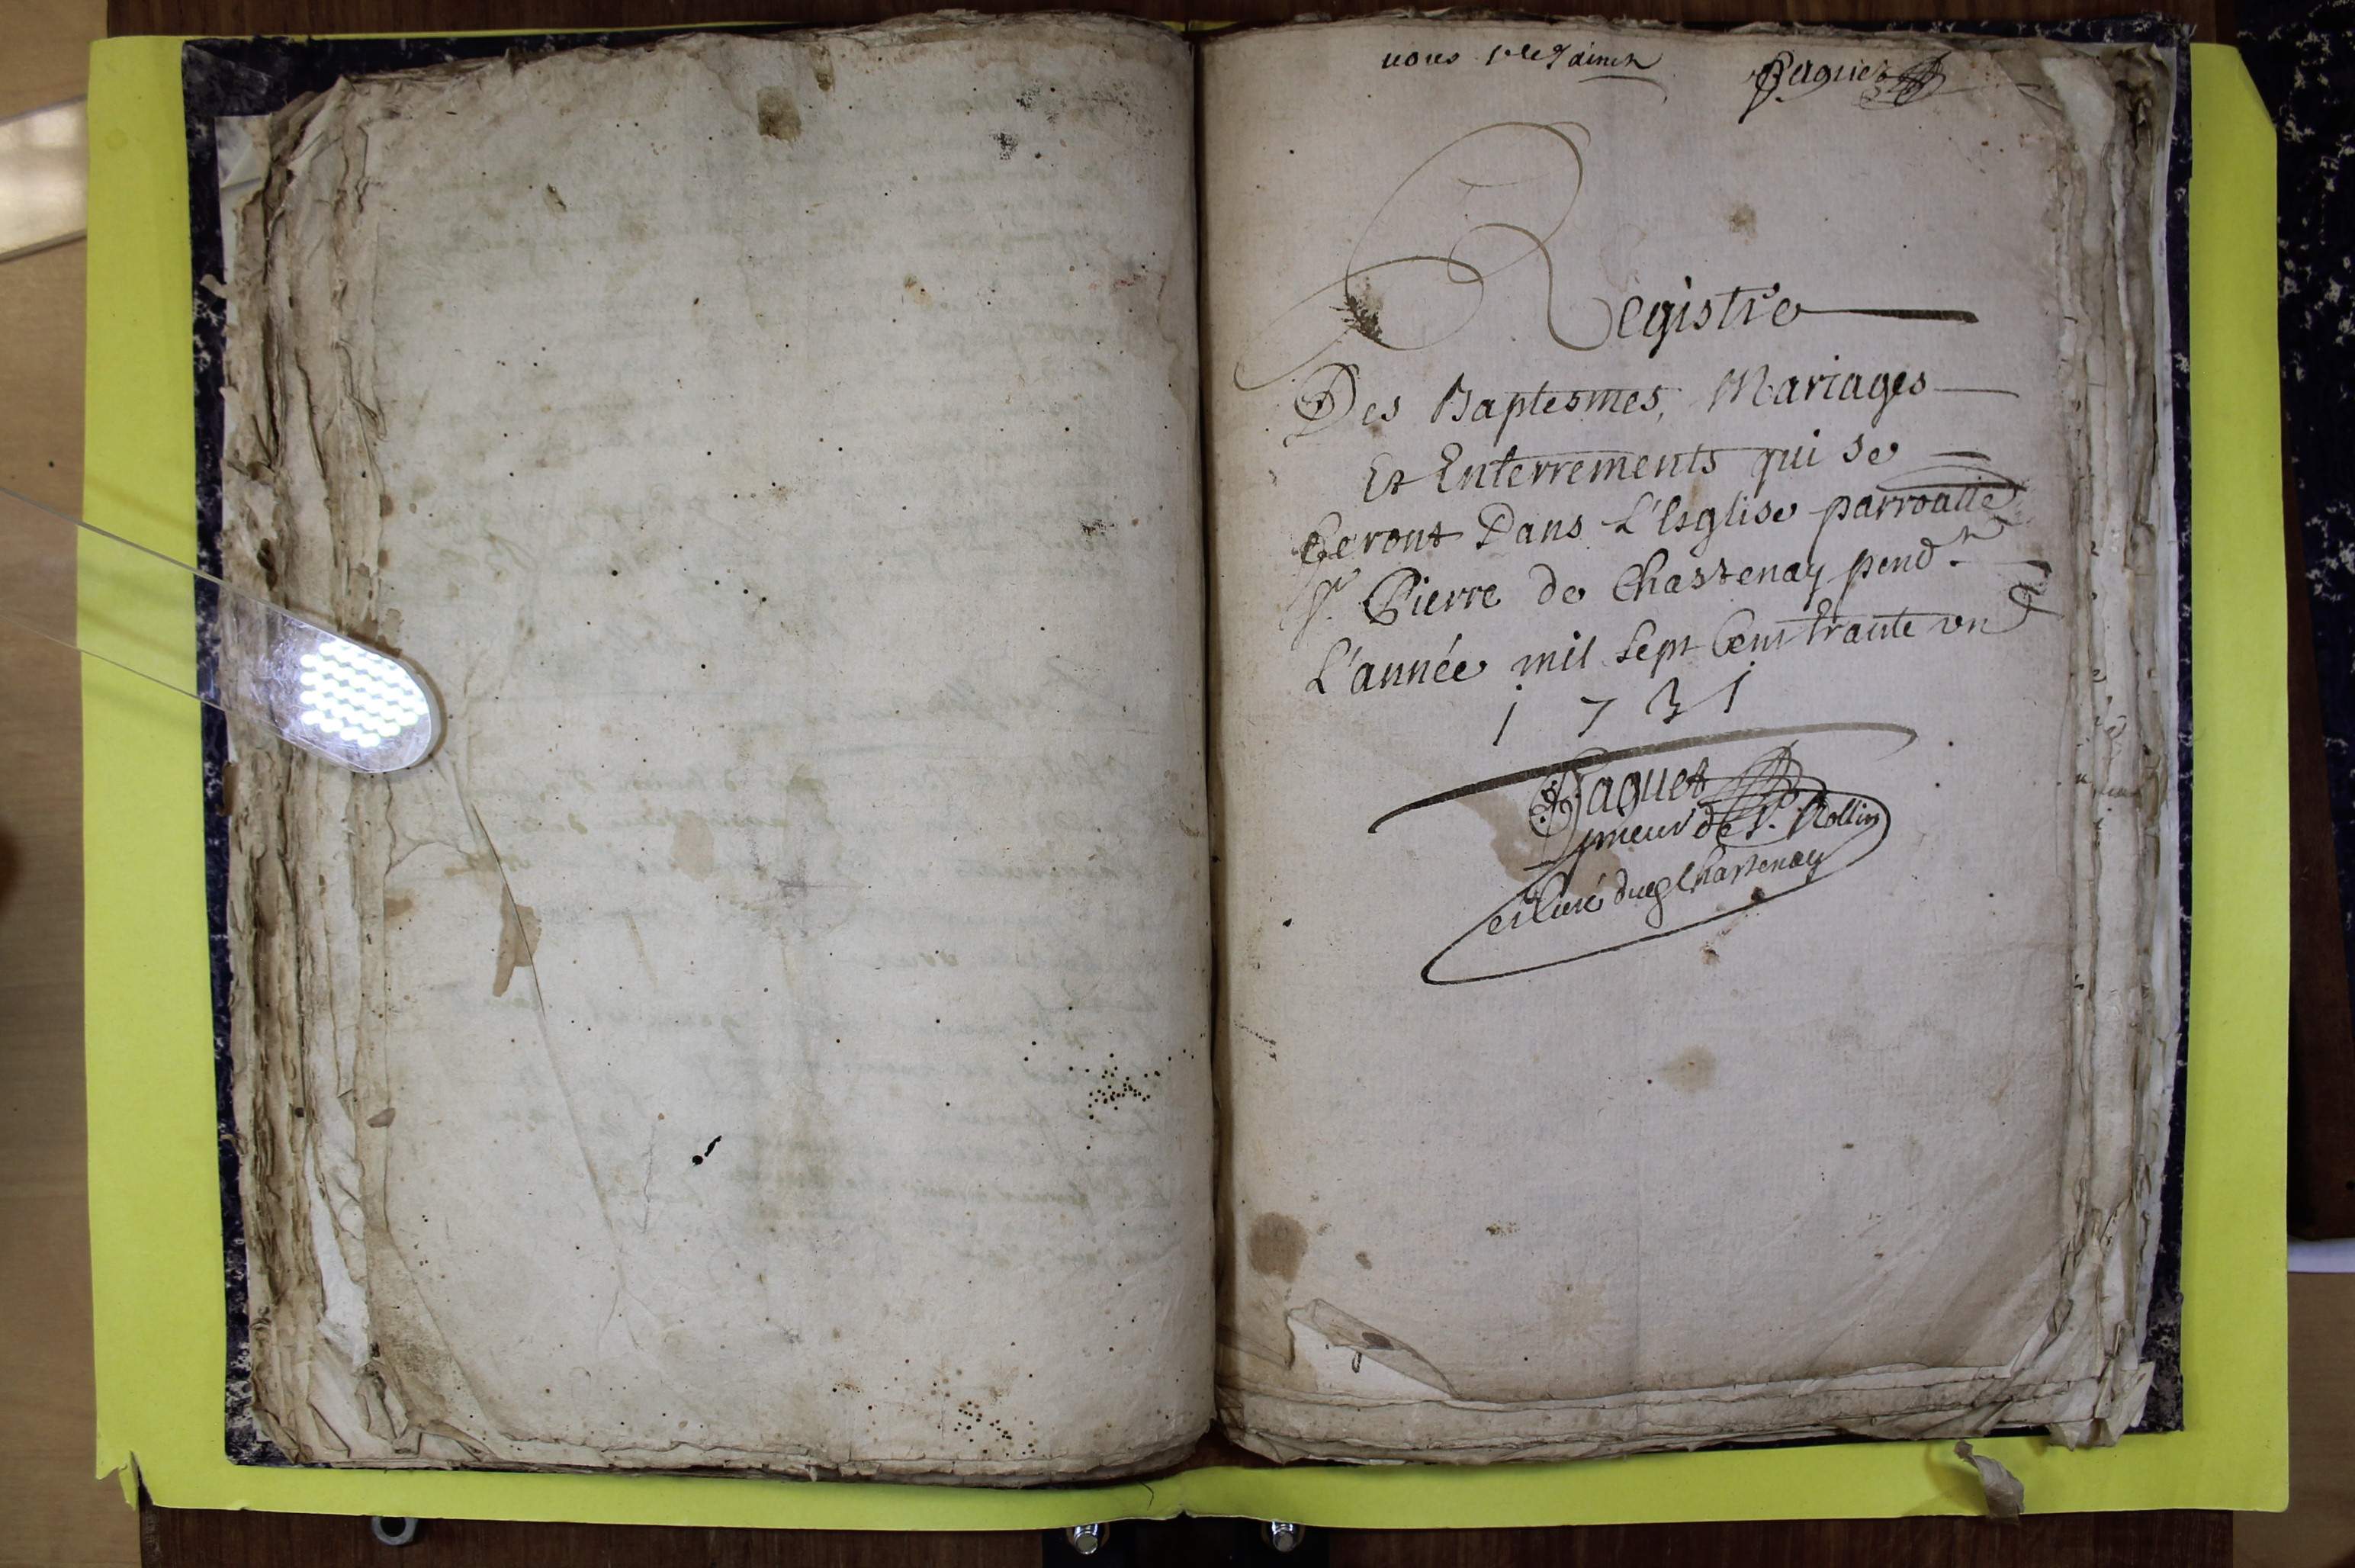 nous
Paquet
Registre
Des Baptesmes, Mariages
Et Enterrements qui se
feront Dans L'Esglise parroalle
St. Pierre de Chastenay pendt
L'année mil sept Cent trante un
1731
Paquet
prieur de St. Rollin
et Curé dud Chastenay